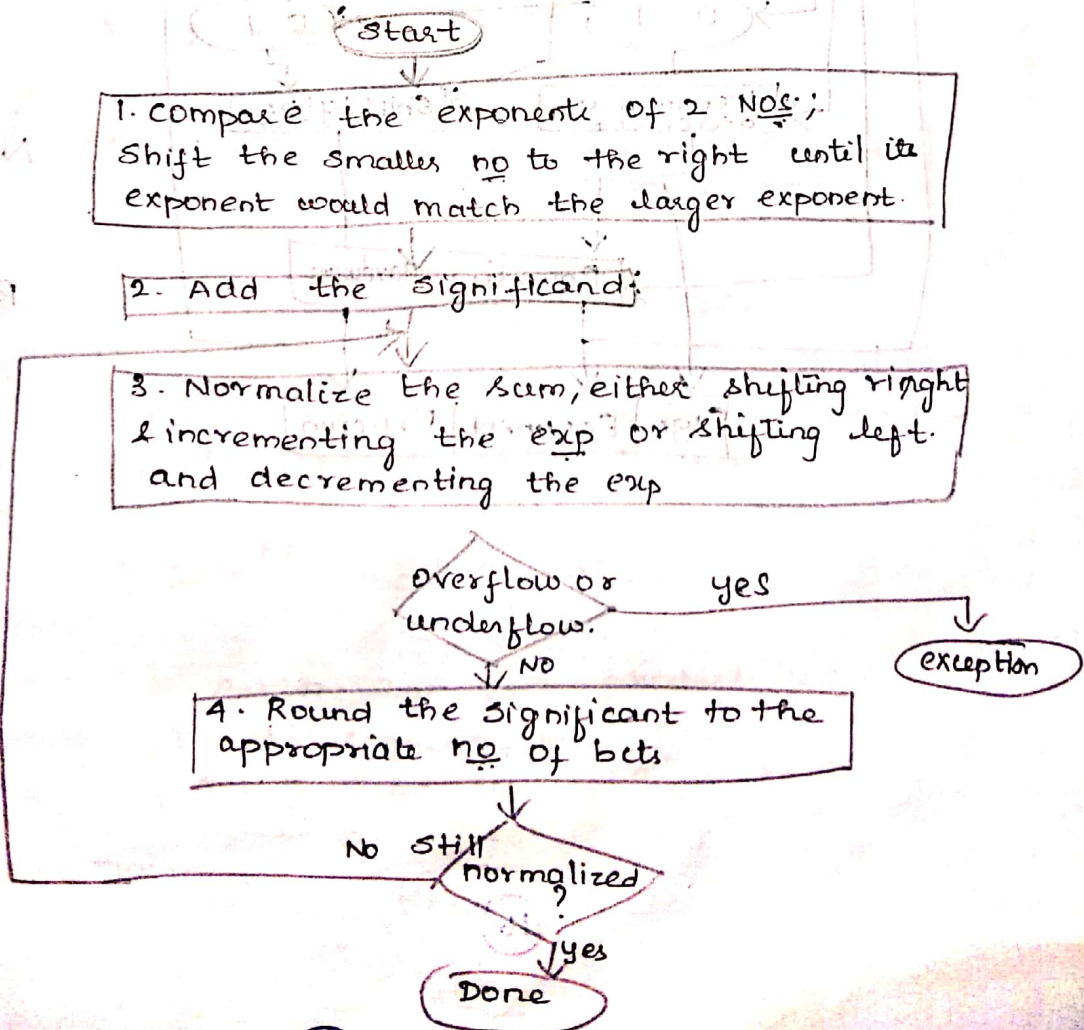 Start
1. Compare the exponents of 2 NO's;
Shift the smaller no to the right until its
exponent would match the larger exponent.
2. Add the significand;
3. Normalize the sum, either shifting ringht
& incrementing the exp or shifting left.
and decrementing the exp
overflow or
underflow.
yes
exception
NO
4. Round the significant to the
appropriate no of bets
No Still
normalized
?
yes
Done